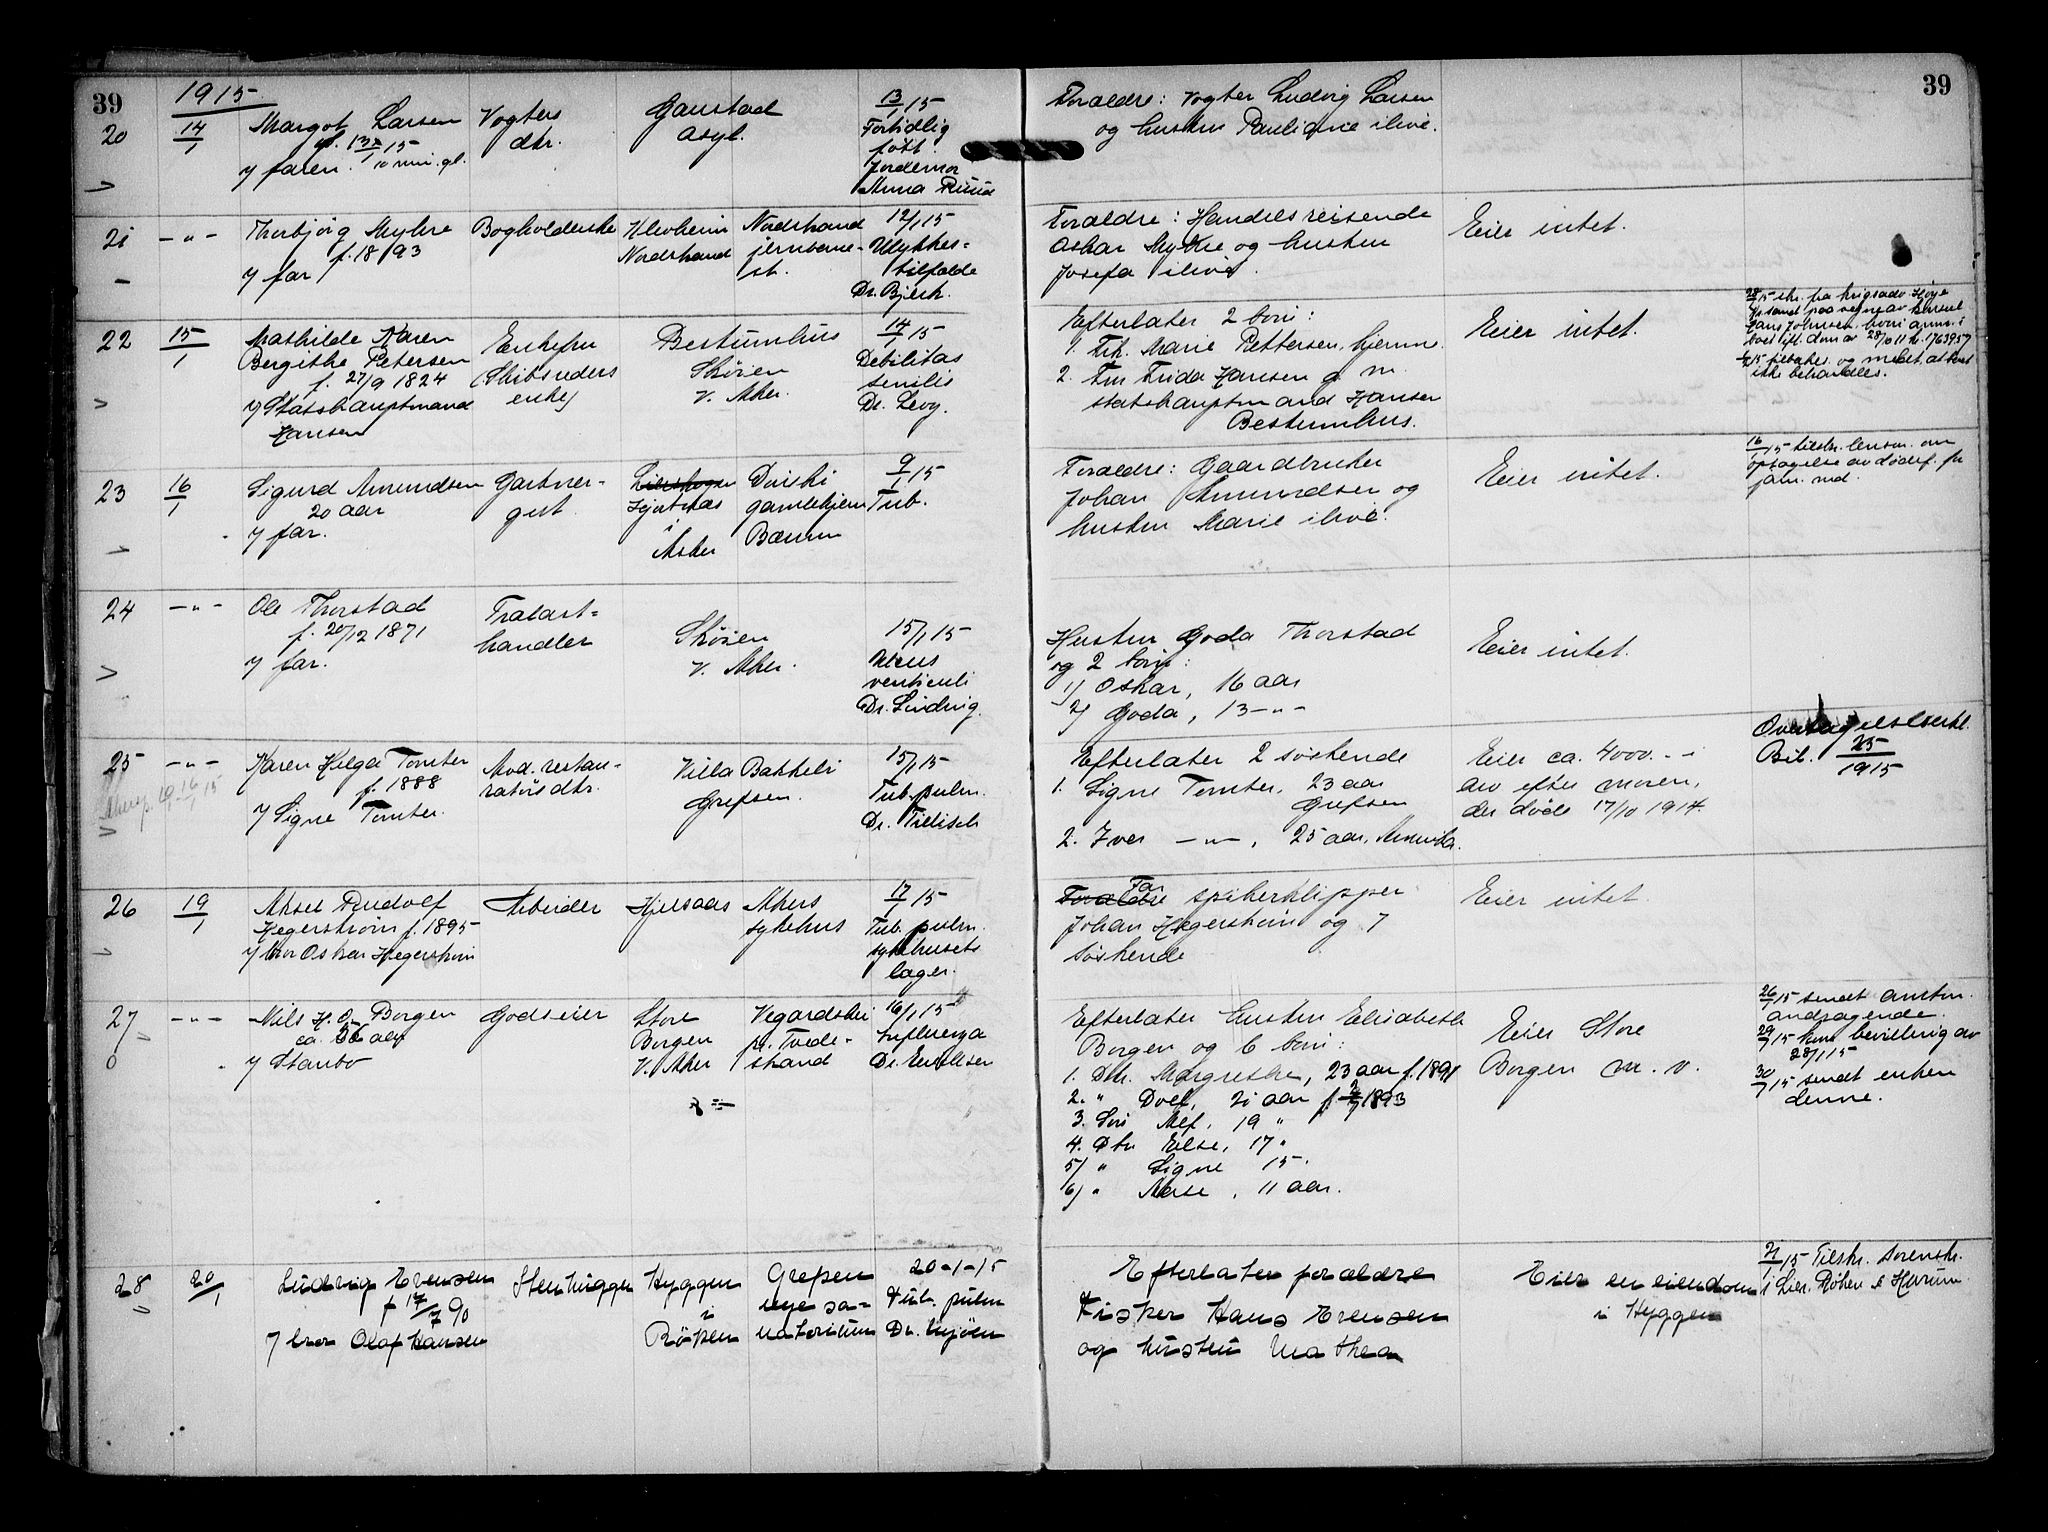 39
1915
20
14/1
Margot Larsen
f. 13/1 15
10 min. gl.
y faren.
Vogters
dtr.
Gaustad
asyl.
13/1 15
Fortidlig
født
Jordemor
Anna Ruud
Forældre: Vogter Ludvig Larsen
og hustru Pauline ilive.
39
21
-"-
Thorbjörg Myhre
f. 18 93
y far
Bogholderske
Klevheim
Nordstrand
Nordstrand
jernbane-
st.
12/1 15
Ulykkes-
tilfælde
Dr. Bjerk.
Forældre: Handelsreisende
Oskar Myhre og hustru
Josefa ilive.
Eier intet.
22
15/1
Mathilde Karen
Bergithe Petersen
f. 27/9 1824
y Statshauptmand
Hansen
Enkefru
(Skibsreders
enke)
Bestumhus
Skøien
V. Aker.
14/1 15
Debilitas
senilis
Dr. Levy.
Efterlater 2 børn:
1. Frk. Marie Pettersen, hjemme
2. Fru Frida Hansen g. m.
statshauptmand Hansen
Bestumhus.
Eier intet.
ikke behandles.
23
16/1
Sigurd Amundsen
20 aar
y far.
Gartner-
gut.
i
Asker
gamlehjem
Bærum
9/1 15
Tub.
Forældre: Gaardbruker
Johan Amundsen og
hustru Marie ilive.
Eier intet.
16/1 15 tilskr. lensm. om
optagelse av dødsf. fr
24
-"-
Ole Thorstad
f. 20/12 1871
y far.
Trælast-
handler
Skøien
V. Aker.
15/1 15
Ulcus
ventriculi
Dr. Sinding.
Hustru Goda Thorstad
og 2 børn:
1) Oskar, 16 aar
2) Goda, 13 -"-
Eier intet.
25
-"-
Karen Helga Tomter
f. 1888
y Signe Tomter.
Avd. restau-
ratørs dtr.
Villa Bakkeli
Grefsen.
15/1 15
Tub. pulm.
Dr. Tillisch
Efterlater 2 søskende
1. Signe Tomter, 23 aar
Grefsen
2. Iver -"-, 25 aar, Amerika.
Eier ca. 4000.- i
arv efter moren,
der døde 17/10 1914.
Overtagelseserkl.
Bil. 25/1915
26
19/1
Aksel Rudolf
Hegerstrøm f. 1895
y bror Oskar Hegerstrøm
Arbeider
Kjelsaas
Akers
sykehus
17/1 15
Tub. pulm.
sykehusets
læger.
Forældre Far spikerklipper
Johan Hegerstrøm og 7
søskende
Eier intet.
27
-"-
Nils H. O. Borgen
ca. 56 aar
y Stanbo
Godseier
Store
Borgen
V. Aker
Vegardshei
pr. Tvede-
strand
16/1 15
Influenza
Dr. Evensen
Efterlater hustru Elisabeth
Borgen og 6 børn:
1. Dtr. Margrethe, 23 aar f. 1891
2. " Dolf, 21 aar f. 1893
3. Søn Alf, 19 "
4. Dtr. Else, 17 "
5) " Signe 15.
6) " Aase, 11 aar.
Eier Store
Borgen m. v.
26/1 15 sendt amtm.
andragende.
29/1 15 kom bevilling av
28/1 15
30/1 15 sendt enken
denne.
28
20/1
Ludvig Evensen
f 17/7 90
y bror Olaf Hansen
Stenhugger
Hyggen
i
Røken
Grefsen
nye sa-
natorium
20-1-15
Tub. pulm
Dr. Mjøen
Efterlater forældre
Fisker Hans Evensen
og hustru Mathea
Eier en eiendom
i Hyggen
21/1 15 Tilskr. sorenskr.
i Lier, Røken & Hurum